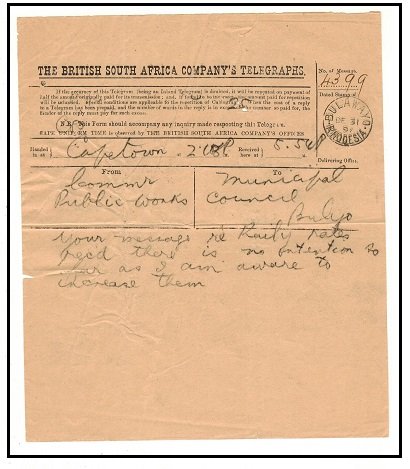 THE BRITISH SOUTH AFRICA COMPANY'S TELEGRAPHS.
No. of Message.
4399
Dated Stamp of
If the accuracy of this Telegram (being an Inland Telegram) is desired, it will be repeated on payment of
half the amount originally paid for its transmission; and, if
25
to a Telegram has been prepaid, and the number of words in the reply is in excess of the number so paid for, the
Sender of the reply must pay for such excess.
N.B. This Form should accompany any inquiry made respecting this Telegram.
TIME is observed by THE BRITISH SOUTH AFRICA COMPANY'S OFFICES
BULAWAYO
DE 31
RHODESIA
Delivering Office.
Handed in at Capetown Received here at 5.54
From To
Commr Municipal
Public Works Council
Bulyo
Your message re Railway rates
recd there is no intention so
far as I am aware to
increase them